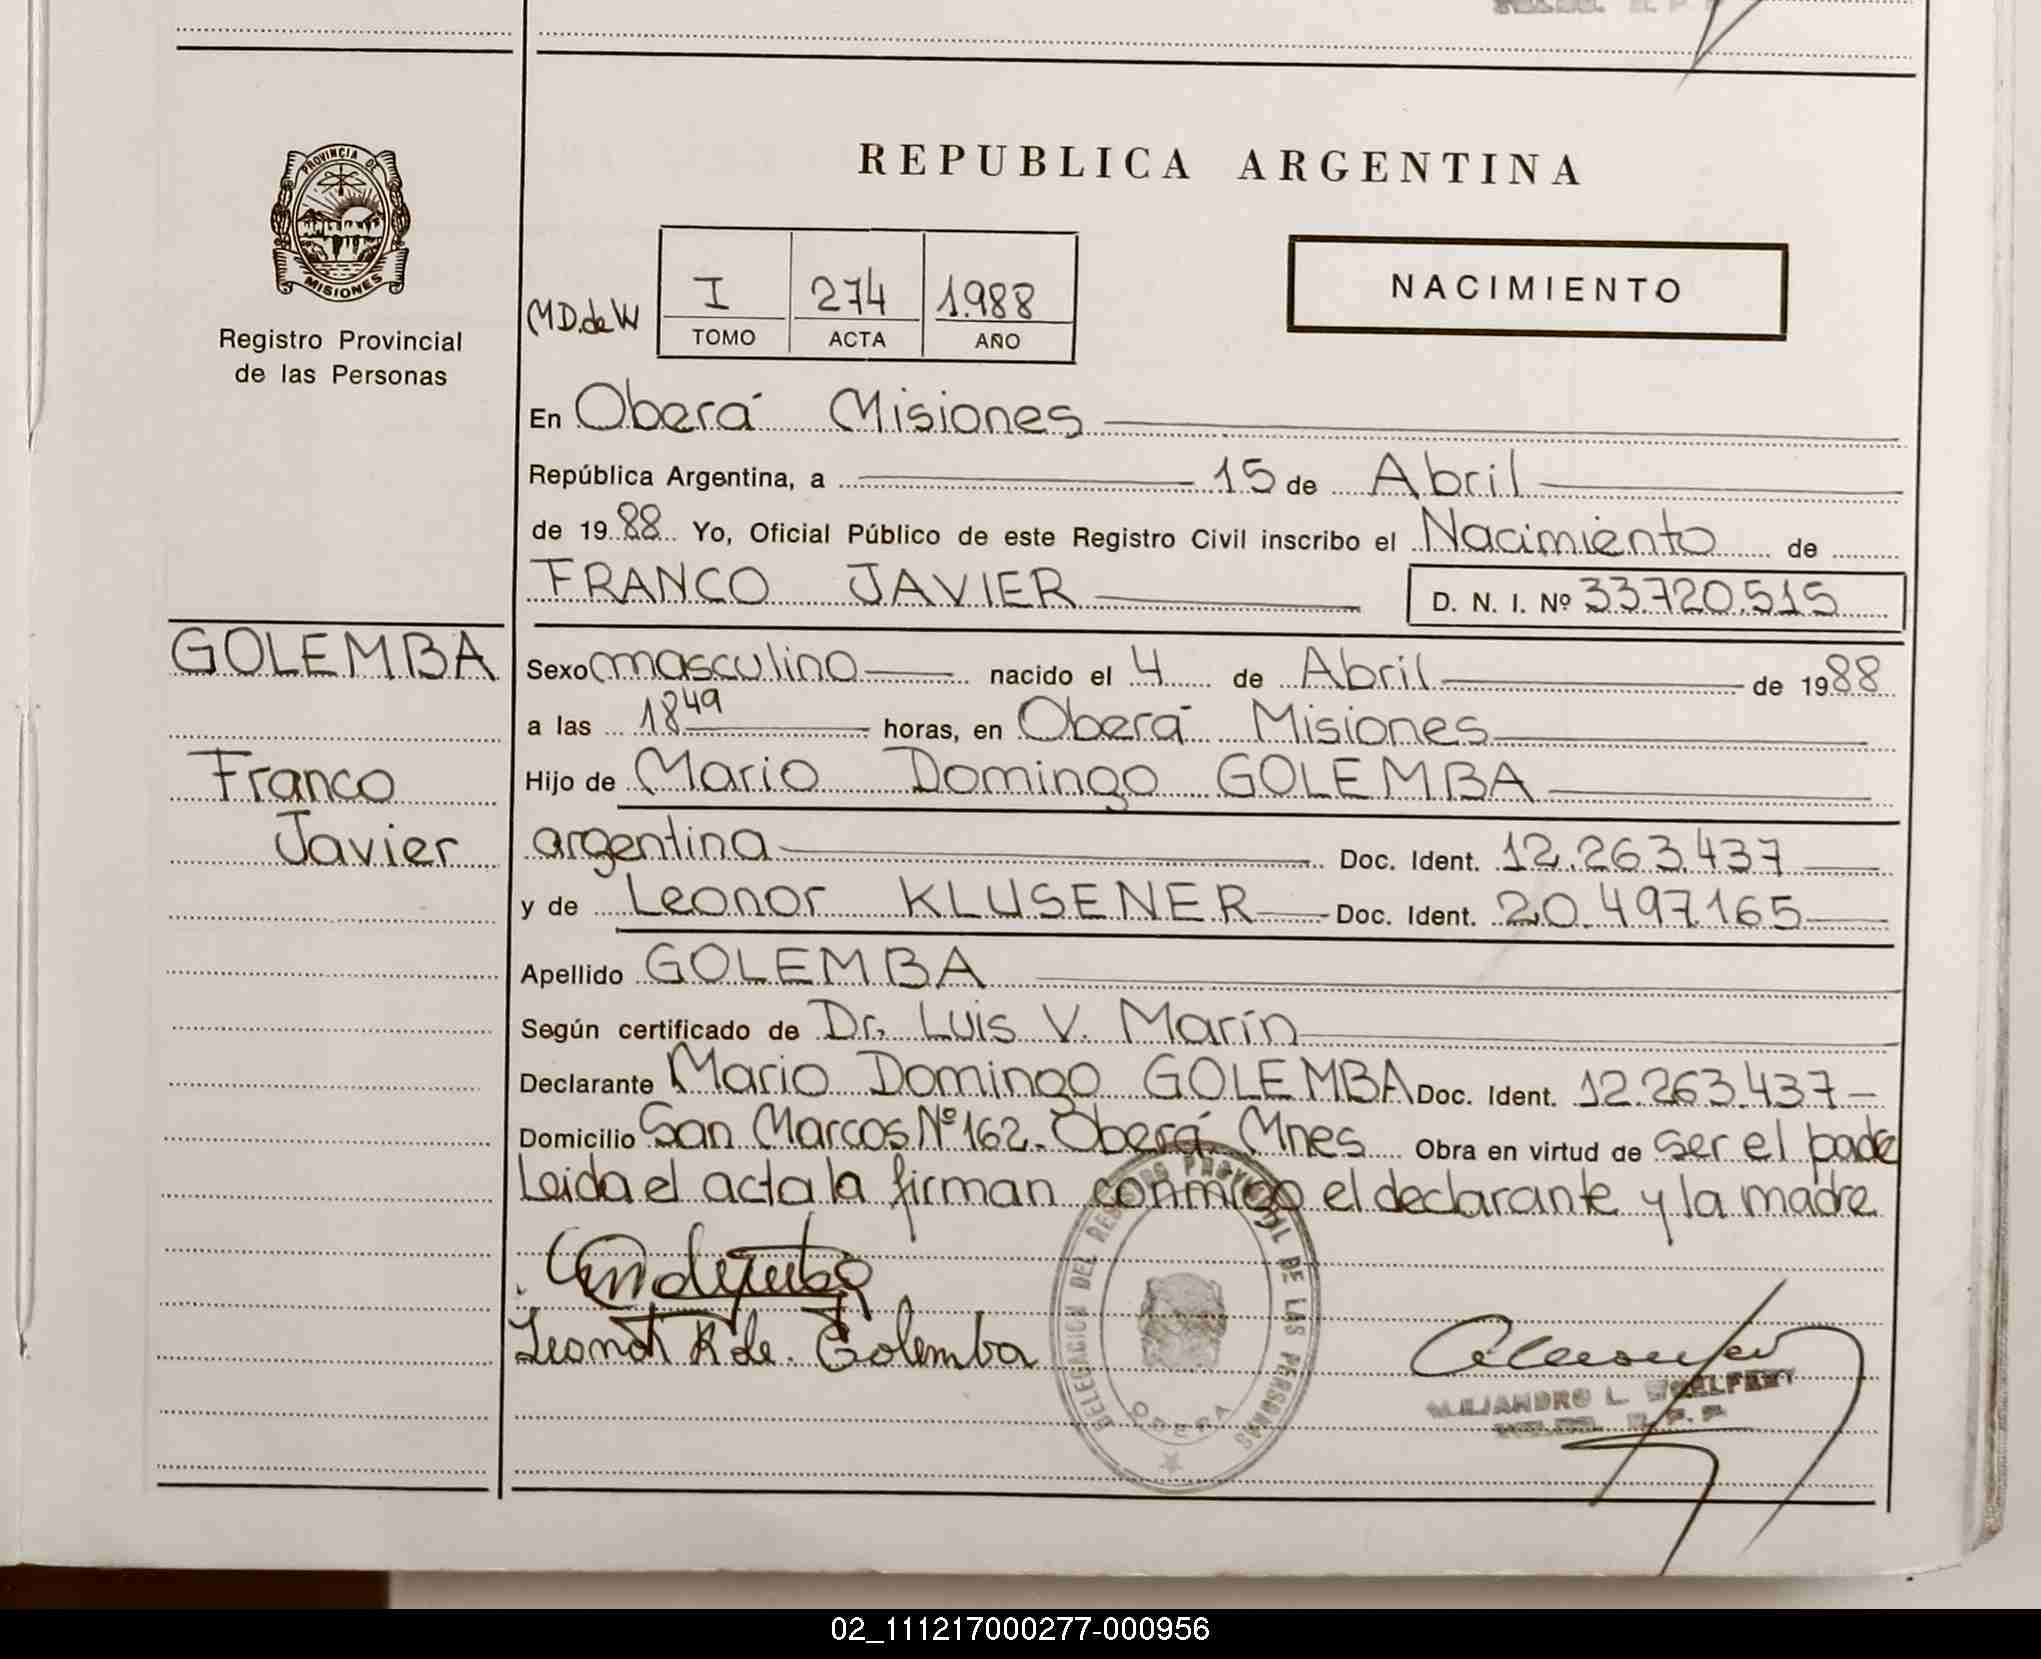 PROVINCIA DE
MISIONES
Registro Provincial
de las Personas
REPUBLICA ARGENTINA
NACIMIENTO
MD.de W
I 274 1.988
TOMO ACTA AÑO
En Oberá Misiones
República Argentina, a 15 de Abril
de 1988 Yo, Oficial Público de este Registro Civil inscribo el Nacimiento de
FRANCO JAVIER D. N. I. Nº 33.720.515
GOLEMBA
Franco
Javier
Sexo masculino nacido el 4 de Abril de 1988
a las 18 49 horas, en Oberá Misiones
Hijo de Mario Domingo GOLEMBA
argentina Doc. Ident. 12.263.437
y de Leonor KLUSENER Doc. Ident. 20.497.165
Apellido GOLEMBA
Según certificado de Dr. Luis V. Marín
Declarante Mario Domingo GOLEMBA Doc. Ident. 12.263.437
Domicilio San Marcos Nº 162. Oberá Mnes Obra en virtud de ser el padre
Leida el acta la firman conmigo el declarante y la madre
Leonor K de Golemba
DELEGACION DEL REGISTRO PROVINCIAL DE LAS PERSONAS
OBERA
ALEJANDRO L.
02_111217000277-000956